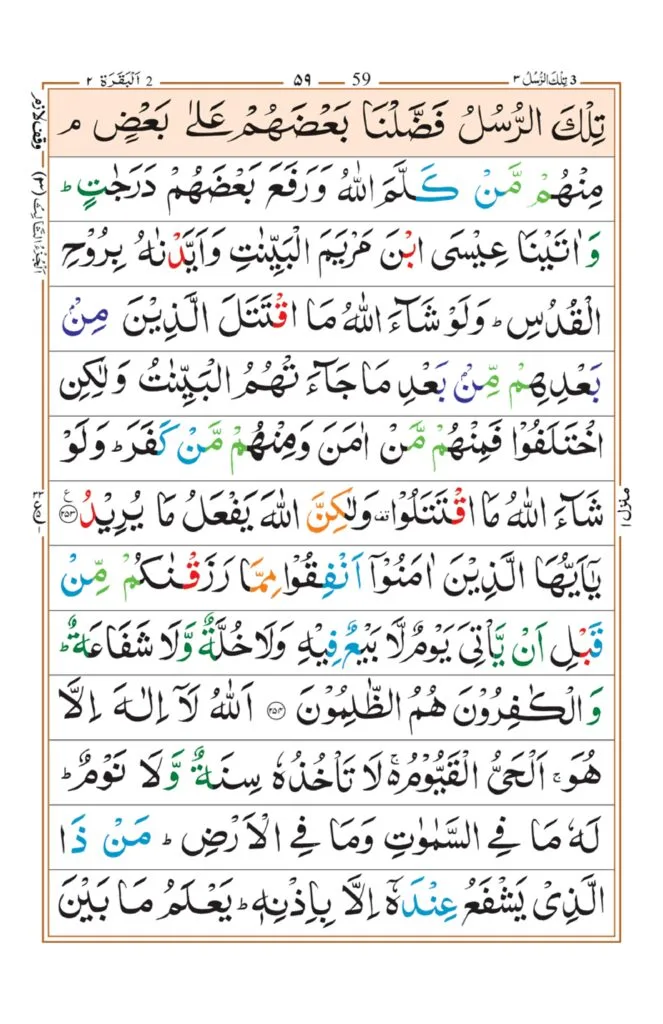 تِلْكَ الرُّسُلُ ٣ 3 59 ۵۹ 2 اَلْبَقَرَة ٢
تِلْكَ الرُّسُلُ فَضَّلْنَا بَعْضَهُمْ عَلٰى بَعْضٍ ۘ
مِنْهُمْ مَّنْ كَلَّمَ اللّٰهُ وَرَفَعَ بَعْضَهُمْ دَرَجٰتٍ ؕ
وَاٰتَيْنَا عِيْسَى ابْنَ مَرْيَمَ الْبَيِّنٰتِ وَاَيَّدْنٰهُ بِرُوْحِ
الْقُدُسِ ؕ وَلَوْ شَآءَ اللّٰهُ مَا اقْتَتَلَ الَّذِيْنَ مِنْۢ
بَعْدِهِمْ مِّنْۢ بَعْدِ مَا جَآءَ تْهُمُ الْبَيِّنٰتُ وَلٰكِنِ
اخْتَلَفُوْا فَمِنْهُمْ مَّنْ اٰمَنَ وَمِنْهُمْ مَّنْ كَفَرَ ؕ وَلَوْ
شَآءَ اللّٰهُ مَا اقْتَتَلُوْا ۟ وَلٰكِنَّ اللّٰهَ يَفْعَلُ مَا يُرِيْدُ ﴿٢٥٣﴾ ع
يٰۤاَيُّهَا الَّذِيْنَ اٰمَنُوْۤا اَنْفِقُوْا مِمَّا رَزَقْنٰكُمْ مِّنْ
قَبْلِ اَنْ يَّاْتِىَ يَوْمٌ لَّا بَيْعٌ فِيْهِ وَلَا خُلَّةٌ وَّلَا شَفَاعَةٌ ؕ
وَالْكٰفِرُوْنَ هُمُ الظّٰلِمُوْنَ ﴿٢٥٤﴾ اَللّٰهُ لَاۤ اِلٰهَ اِلَّا
هُوَ ۚ اَلْحَىُّ الْقَيُّوْمُ ۚ لَا تَاْخُذُهٗ سِنَةٌ وَّلَا نَوْمٌ ؕ
لَهٗ مَا فِى السَّمٰوٰتِ وَمَا فِى الْاَرْضِ ؕ مَنْ ذَا
الَّذِىْ يَشْفَعُ عِنْدَهٗۤ اِلَّا بِاِذْنِهٖ ؕ يَعْلَمُ مَا بَيْنَ
وقف لازم
اَلْجُزْءُ الثَّالِثُ (٣)
منزل ١